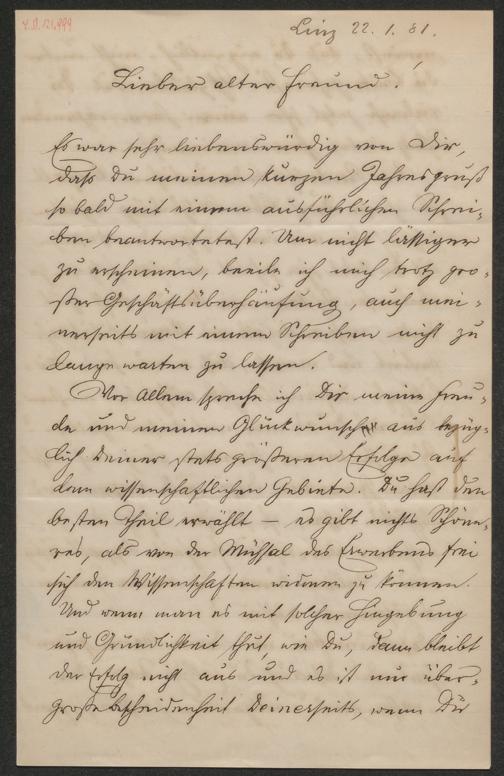 Y.N. 121.999
Linz 22. 1. 81.
Lieber alter Freund!
Es war sehr liebenswürdig von Dir,
daß Du meinen kurzen Jahresgruß
so bald mit einem ausführlichen Schrei-
ben beantwortetest. Um nicht lässiger
zu erscheinen, beeile ich mich trotz gro-
ßer Geschäftsüberhäufung, auch mei-
nerseits mit einem Schreiben nicht zu
lange warten zu lassen.
Vor Allem spreche ich Dir meine Freu-
de und meinen Glückwunsch aus bezüg-
lich Deiner stets größeren Erfolge auf
dem wissenschaftlichen Gebiete. Du hast den
besten Theil erwählt – es gibt nichts Schöne-
res, als von der Mühsal des Erwerbens frei
sich den Wissenschaften widmen zu können.
Und wenn man es mit solcher Hingebung
und Gründlichkeit thut, wie Du, dann bleibt
der Erfolg nicht aus und es ist nur über-
große Bescheidenheit Deinerseits, wenn Du